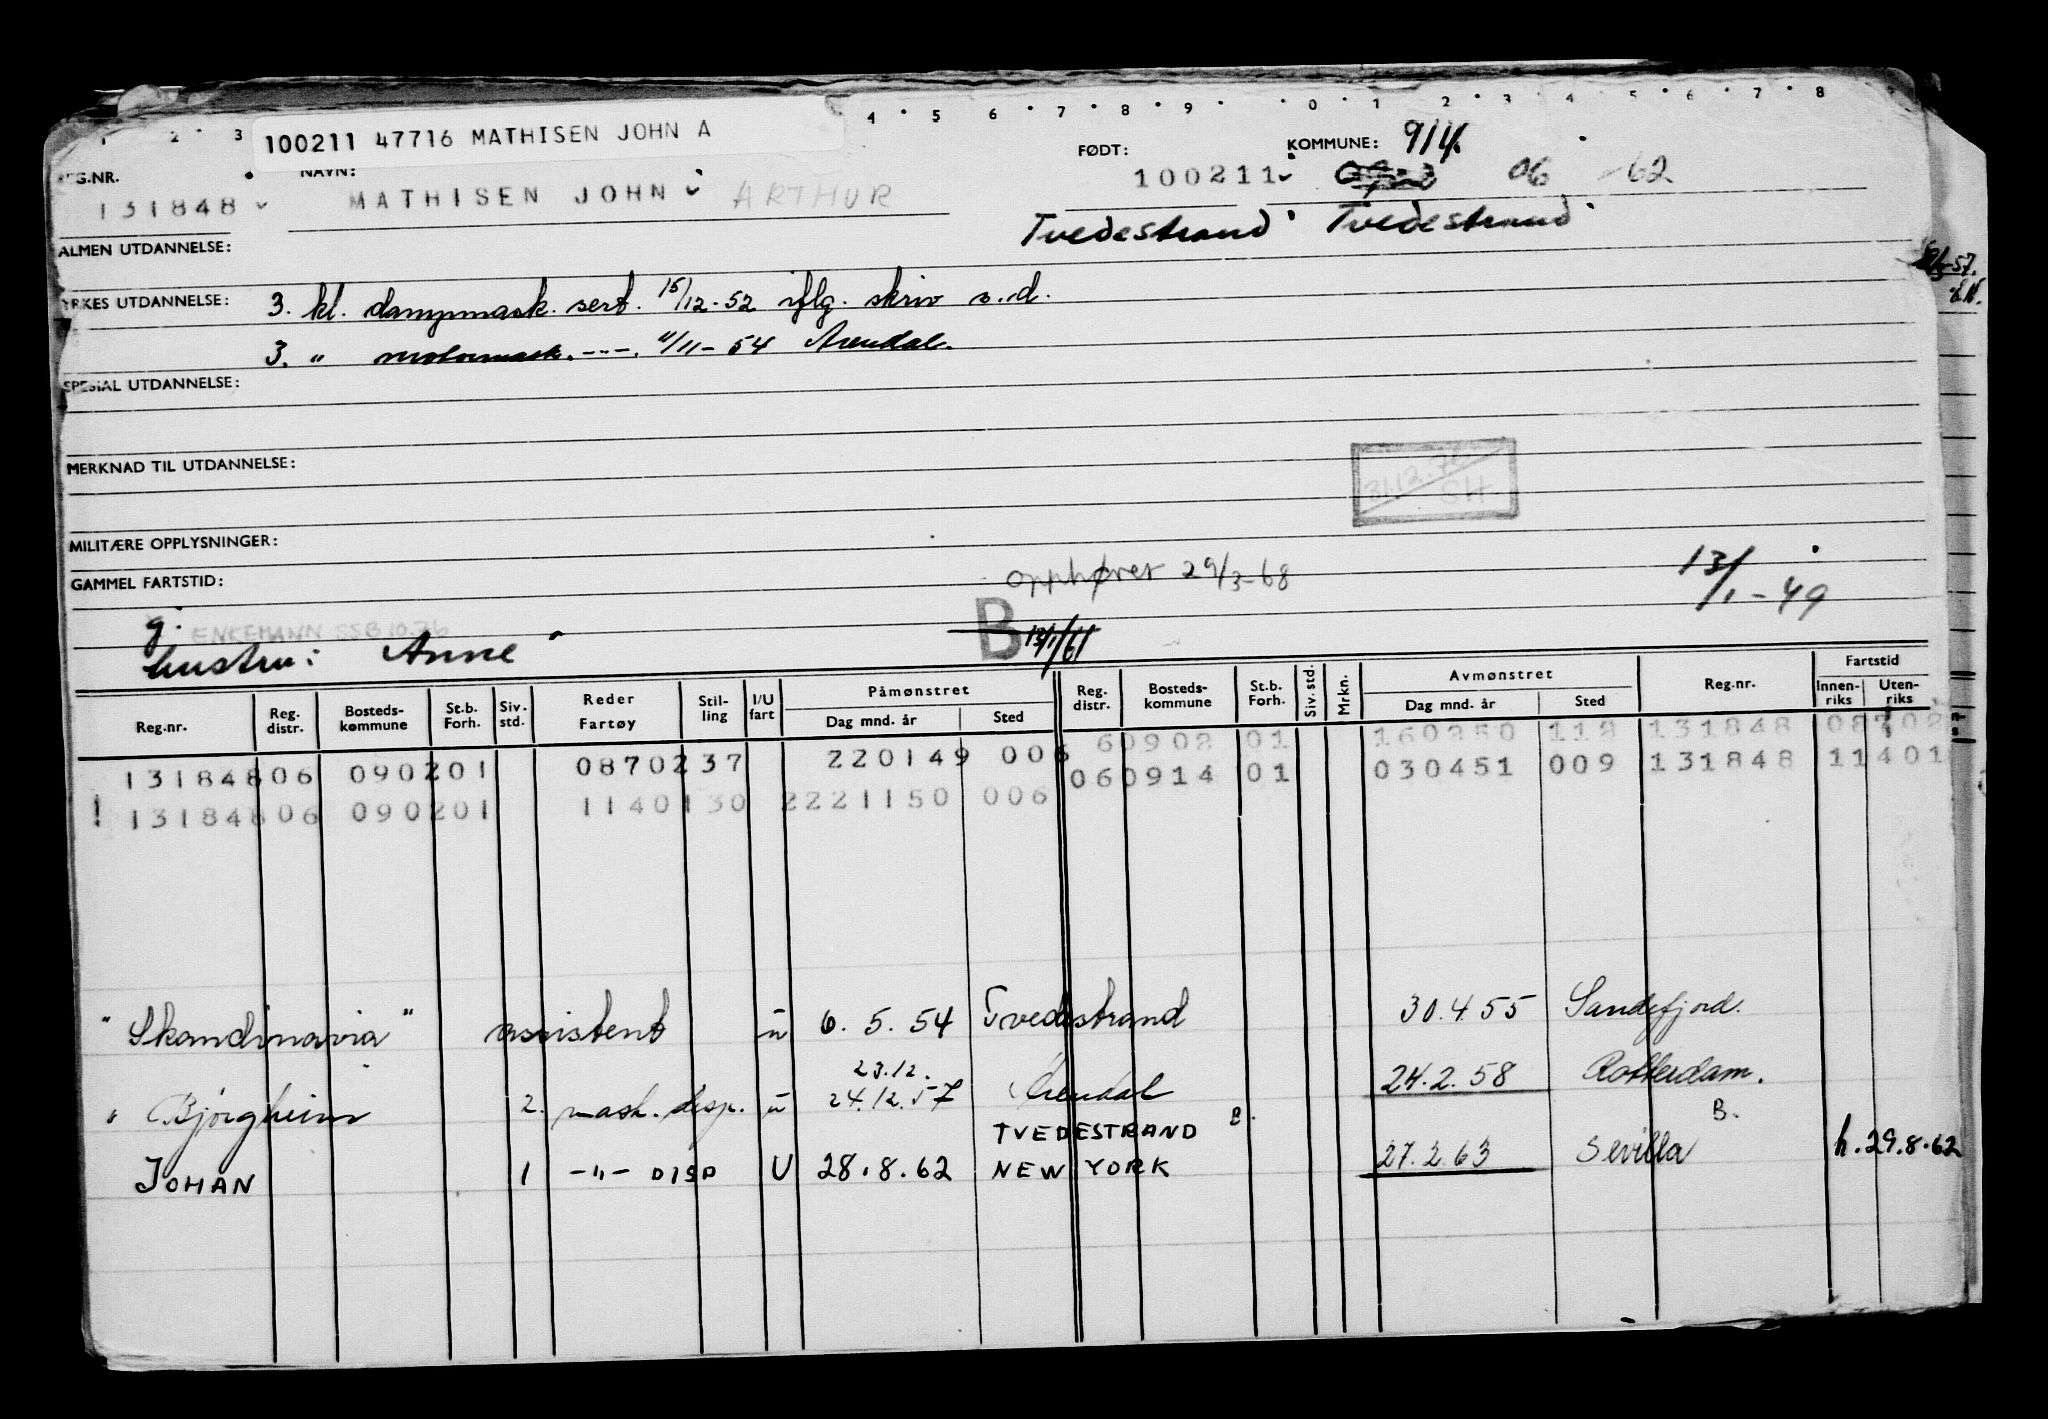 4 5 6 7 8 9 0 1 2 3 4 5 6 7 8
2 3
100211 47716 MATHISEN JOHN A
FØDT: KOMMUNE: 914.
REG.NR. NAVN:
131848 MATHISEN JOHN ARTHUR 100211 06 -62
Tvedestrand Tvedestrand
ALMEN UTDANNELSE:
YRKES UTDANNELSE: 3. kl. dampmask. sert. 15/12-52 iflg. skriv s.d.
3. " motormask. -"-. 11/11-54 Arendal.
SPESIAL UTDANNELSE:
MERKNAD TIL UTDANNELSE:
31.12.76 SH
MILITÆRE OPPLYSNINGER:
GAMMEL FARTSTID:
Opphører 29/3-68
13/1-49
g. ENKEMANN SSB 10.76
B 13/1/61
hustru: Anne
Reg.nr. Reg. distr. Bosteds-kommune St.b. Forh. Siv. std. Reder Fartøy Stil-ling I/U fart Påmønstret Dag mnd. år Sted Reg. distr. Bosteds-kommune St.b. Forh. Siv. std. Mrkn. Avmønstret Dag mnd. år Sted Reg.nr. Fartstid Innen-riks Uten-riks
13184806 090201 0870237 220149 006 60902 01 160250 118 131848 08702
! 13184806 090201 1140130 2221150 006 060914 01 030451 009 131848 11401
"Skandinavia" assistent u 6.5.54 Tvedestrand 30.4.55 Sandefjord.
23.12.
" Bjørgheim 2. mask. disp. u 24.12.57 Arendal 24.2.58 Rotterdam.
TVEDESTRAND B. B.
JOHAN 1 -"- DISP U 28.8.62 NEW YORK 27.2.63 Sevilla h.29.8.62